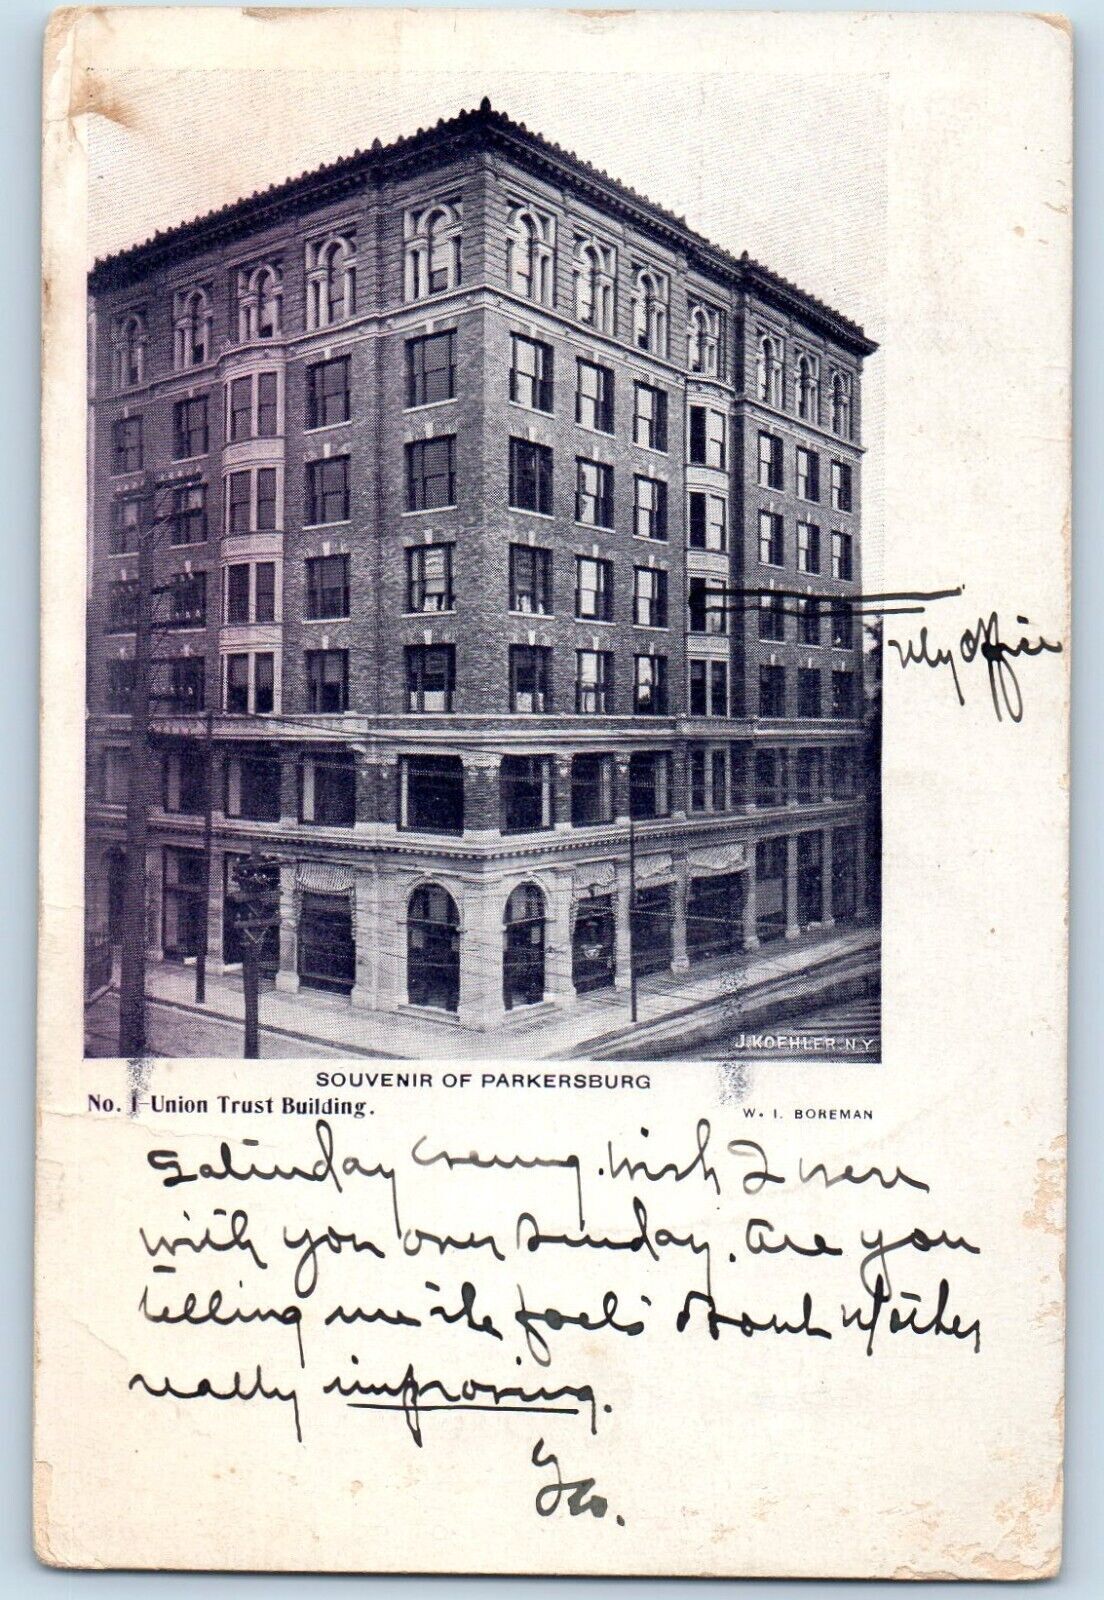 My Office
J. KOEHLER. N.Y
SOUVENIR OF PARKERSBURG
No. 1-Union Trust Building.
W. I. BOREMAN
Saturday Evening. Wish I were
with you over Sunday. Are you
telling me the facts about Mother
really improving.
Geo.